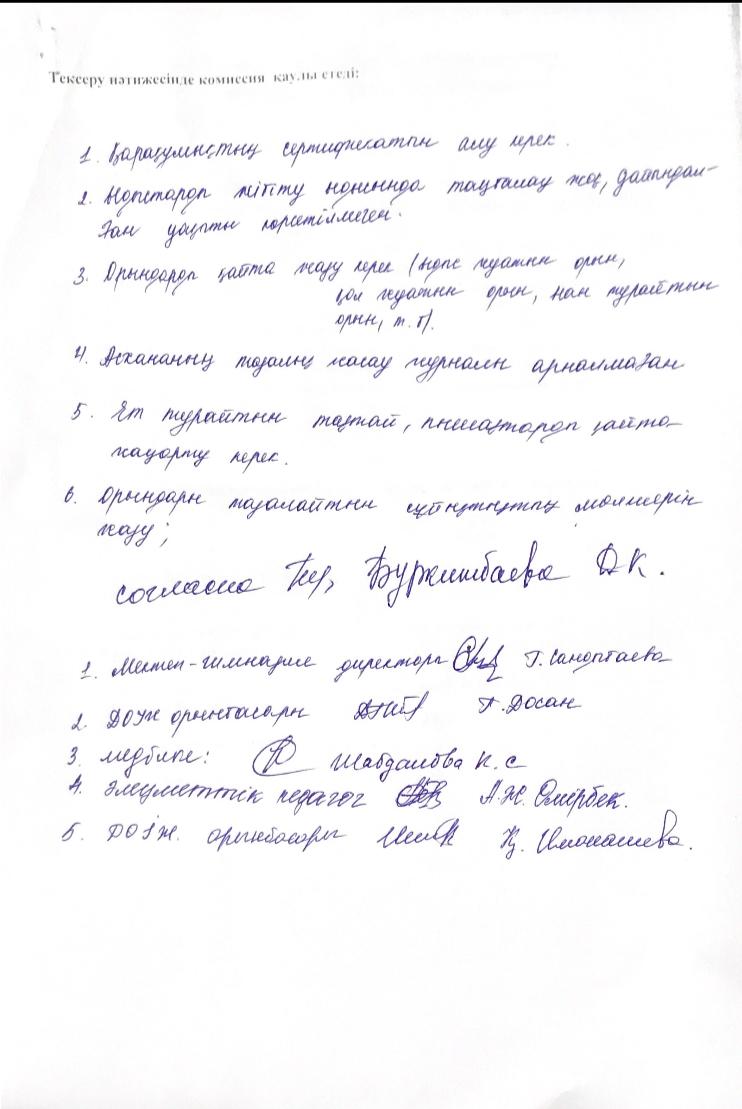 Тексеру нәтижесінде комиссия қаулы етеді:
1. Қарақұмықтың сертификатын алу керек.
2. жібіту таңбалау жоқ, дайындал-
ған уақыты көрсетілмеген.
3. Орындарды қайта жазу керек (ыдыс жуатын орын,
қол жуатын орын, нан турайтын
орын, т.б).
4. Асхананың тазалық жасау журналы арналмаған
5. Ет турайтын тақтай, пышақтарды қайта
жаңарту керек.
6. Орындары тазалайтын сұйықтықтың мөлшерін
жазу;
согласна Буркитбаева Д К.
1. Мектеп-гимназия директоры Г.
2. ДОІЖ орынбасары Г. Досан
3. медбике: Шабданова К. С
4. Әлеуметтік педагог А.Ж. Өмірбек.
5. ДОІЖ. орынбасары Қ. Иманашева.